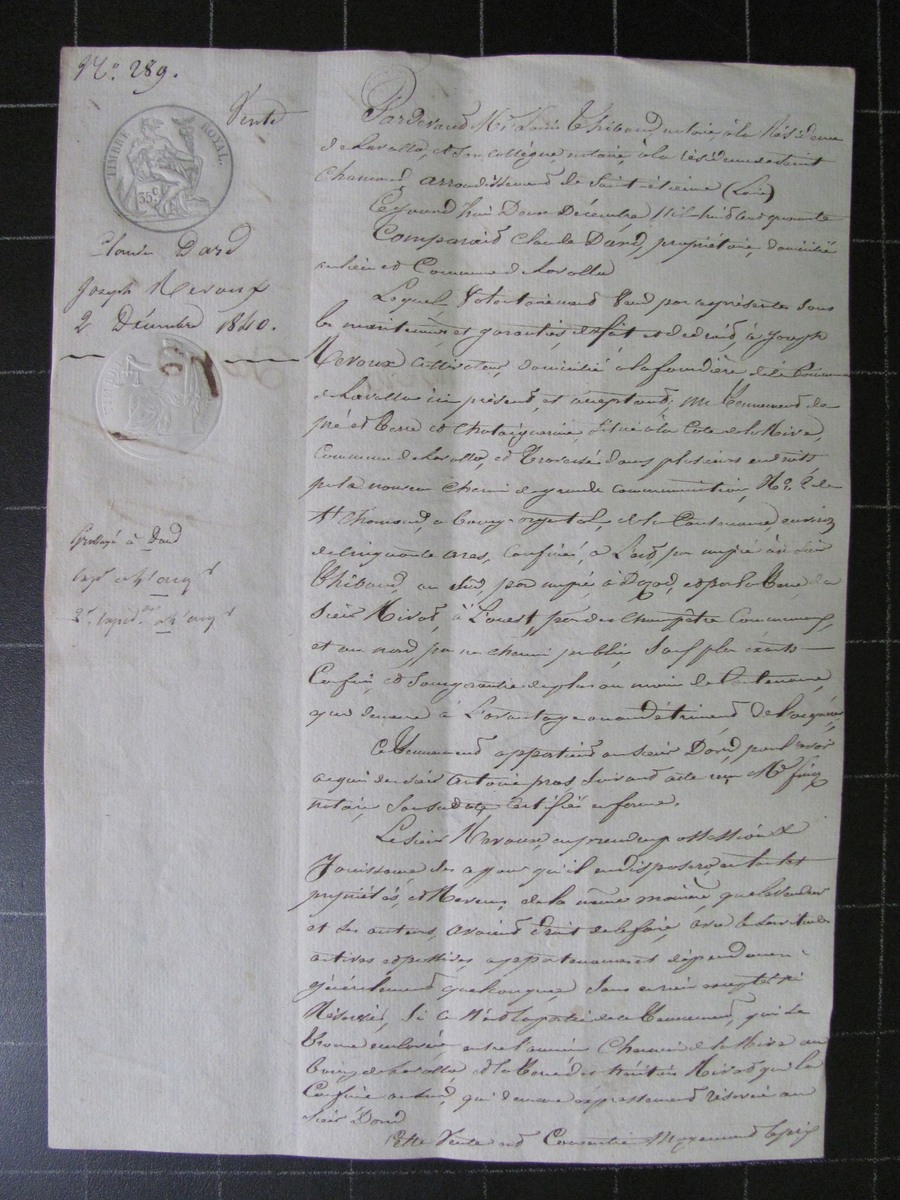 N.o 289.
Vente
TIMBRE ROYAL.
35 c
Claude Dard
Joseph Neroux
2 Décembre 1840.
Par Devant M.e Louis Thibaud, notaire à la Résidence
de Lavalla, et son collègue, notaire, à la résidence de Saint
Chamond, arrondissement de Saint-étienne (Loire)
Cejourd'hui Deux Décembre Mil huit cent quarante
Comparait Claude Dard, propriétaire, domicilié
au lieu et Commune de Lavalla
Lequel, Volontairement Vend par ces présentes sous
les maintenues et garanties de fait et de droit, à Joseph
Neroux cultivateur, domicilié à la fondière de la Commune
de Lavalla ici présent, et acceptant; un Tennement de
pré et Terre et Chataigneraie, situé à la Côte de la Rive,
Commune de Lavalla, et Traversé dans plusieurs endroits
par le nouveau Chemin de grande communication, N.o 2 de
St Chamond, à bourg-argental, de la Contenance environ
de cinquante ares, Confiné, à l'est, par un pré au Sieur
Thibaud, au sud, par un pré à Dard, et par la Terre du
Sieur Nirat, à l'ouest, par des Champêtre Communaux,
et au nord, par un chemin public, sauf plus exacts
Confins, et sans garantie de plus ou moins de Contenance
qui demeure à l'avantage ou au détriment de l'acquéreur,
Ce Tennement appartient au sieur Dard, pour l'avoir
acquis du sieur Antoine pras, suivant acte reçu M.e
notaire, sous sa date, certifié en forme.
Le sieur Neroux, en prendra possession &
Jouissance dès ce jour qu'il en dispose, en toutes
propriétés, et Revenus, de la même manière, que le vendeur
et ses auteurs, avaient droit de le faire, avec les Servitudes
actives et passives, appartenances et dépendances
généralement quelconques, sans en rien excepter ni
Réserver, Si ce N'est la partie de ce Tennement, qui se
Trouve enclavée, entre l'ancien Chemin de la Rive au
bourg de Lavalla et la Terre des héritiers Nirat qui la
Confine au sud, qui demeure expressement réservée au
Sieur Dard
Cette Vente est Consentie Moyennant le prix